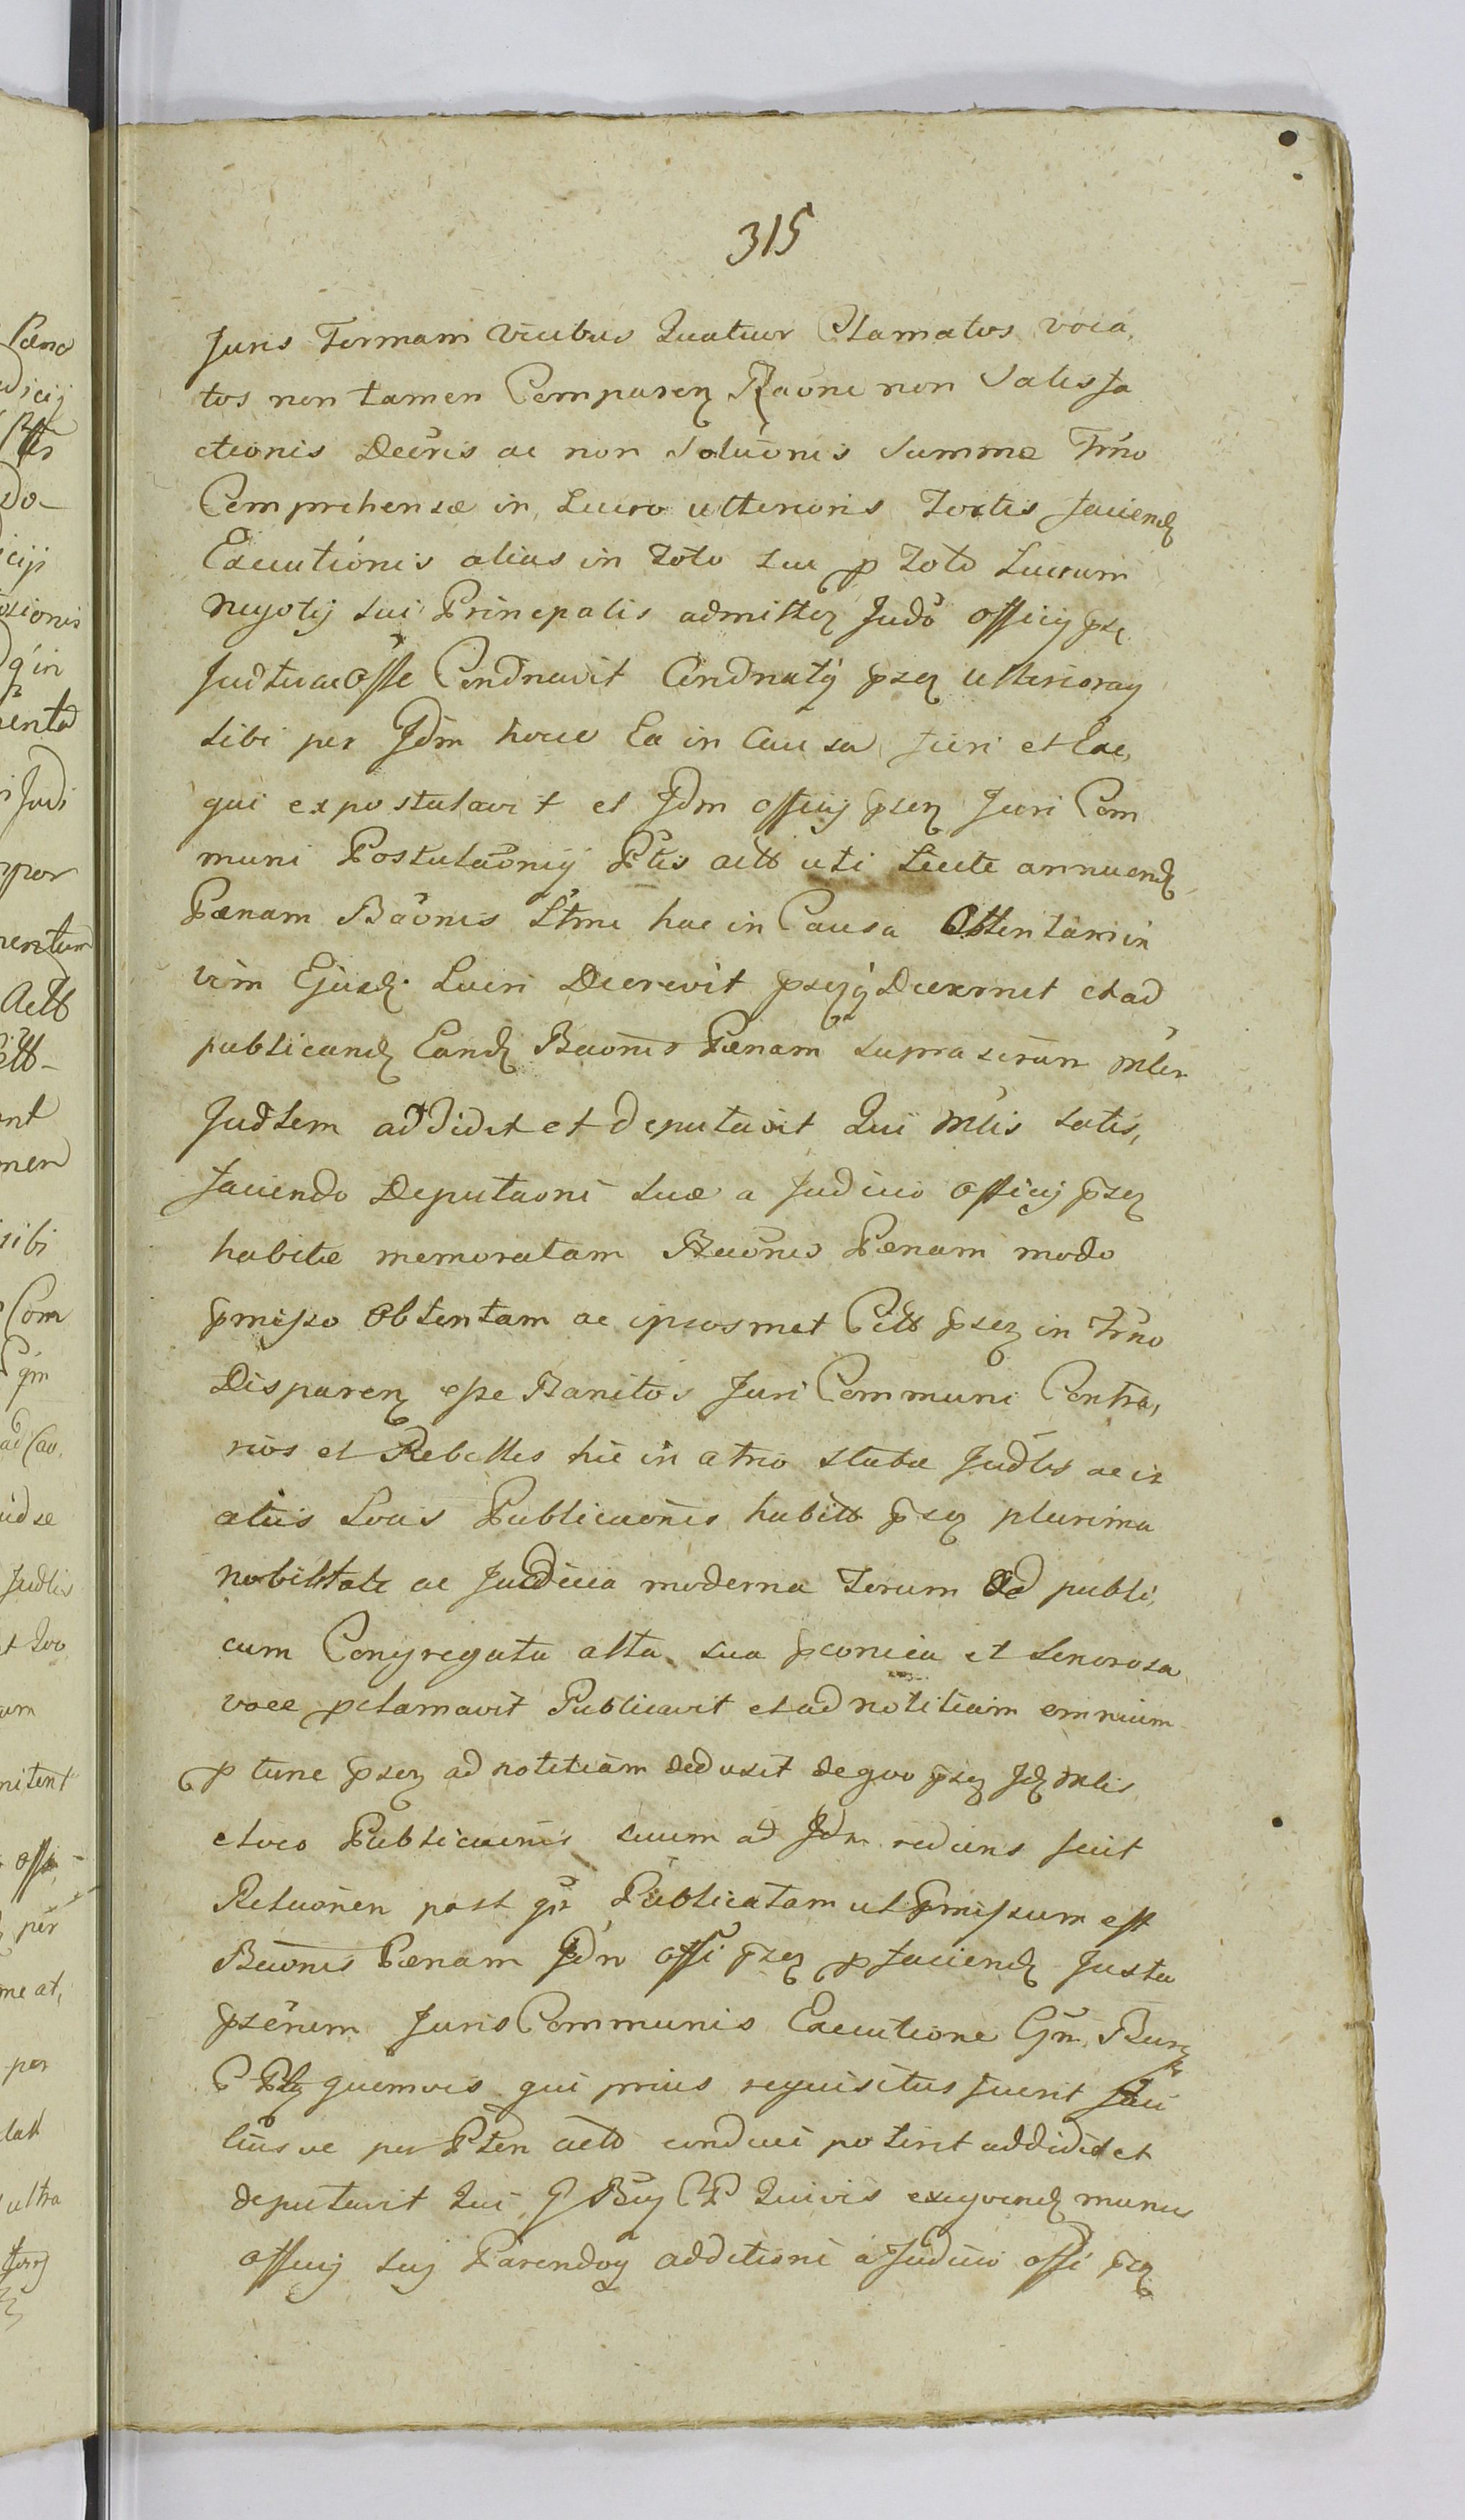 315
Juris Formam vicibus Quatuor Clamatos voca,
tos non tamen Comparen Raōne non Satisfa
ctionis Decris ac non Solūonis Summæ Trno
Comprehensæ in Lucro ulterioris Fortis faciend
Executionis alias in Toto seu p Toto Lucrum
negotij sui Principalis admitten Judō officij psn
Judtu ac Offe Condnavit Condnatq psn ulterioraq
sibi per Jdm hocce Ea in Causa Juri et Eae,
qui expostulavit et Jdm officij psen Juri Com
muni Postulaōnij Ptis actt uti Licite annuend
Pœnam Baōnis Ltme hac in Causa Obtentam in
vim Ejusd Lucri Decrevit psnq Decernit et ad
publicand Eand Baonis Pœnam suprascrum Mlen
Judtem addidit et deputavit Qui Mlis satis,
faciendo Deputaoni suæ a Judicio officij psn
habitæ memoratam Baōnis Pœnam modo
pmisso Obtentam ac ipsosmet Citt psen in Trno
Disparen esse Banitos Juri Communi Contra,
rios et Rebelles hic in atrio Stubæ Judlis ac in
aliis Locis Publicaonis habitt psn plurima
nobilitate ac Judicia moderna Torum Ad publi,
cum Congregata alta sua pconica et Sonorosa
voce pclamavit Publicavit et ad notitiam omnium
p tunc psen ad notitiam deduxit de quo psn Jd Mlis
e loco Publicaonis suum ad Jdm rediens fecit
Relaonen post qm Publicatam ut Pmissum est
Baonis Pœnam Jdm offi psn p faciend Juxta
pscrum Juris Communis Executione Gm Burg
C Plq quemvis qui prius requisitus fuerit faci
liusve per Pten actt conduci poterit addidit et
deputavit Qui G Burg C P Quivis exequend munus
officij sui Parendoq additioni a Judicio offi psn